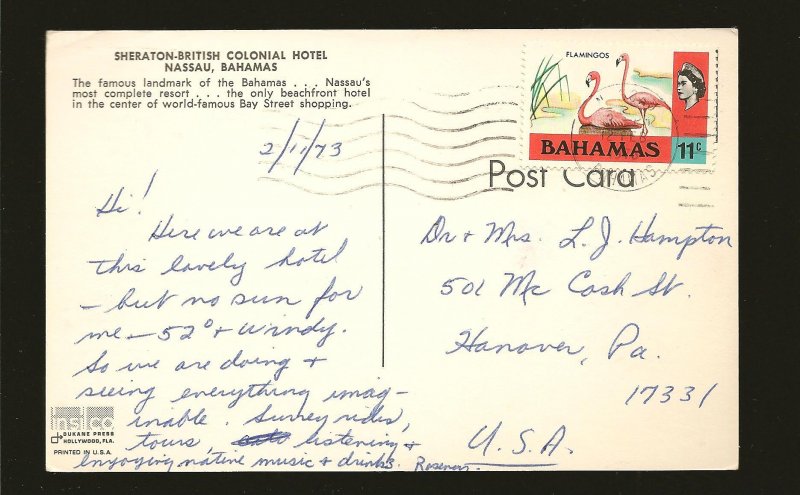 SHERATON-BRITISH COLONIAL HOTEL
NASSAU, BAHAMAS
The famous landmark of the Bahamas . . . Nassau's
most complete resort . . . the only beachfront hotel
in the center of world-famous Bay Street shopping.
2/11/73
Hi!
Here we are at
this lovely hotel
- but no sun for
me - 52° & windy.
So we are doing &
seeing everything imag-
inable. Surrey rides,
tours, listening &
enjoying native music & drinks.
FLAMINGOS
BAHAMAS 11c
Post Card
Dr & Mrs. L. J. Hampton
501 Mc Cosh St.
Hanover, Pa.
17331
U.S.A.
insco
DUKANE PRESS
HOLLYWOOD, FLA.
PRINTED IN U.S.A.